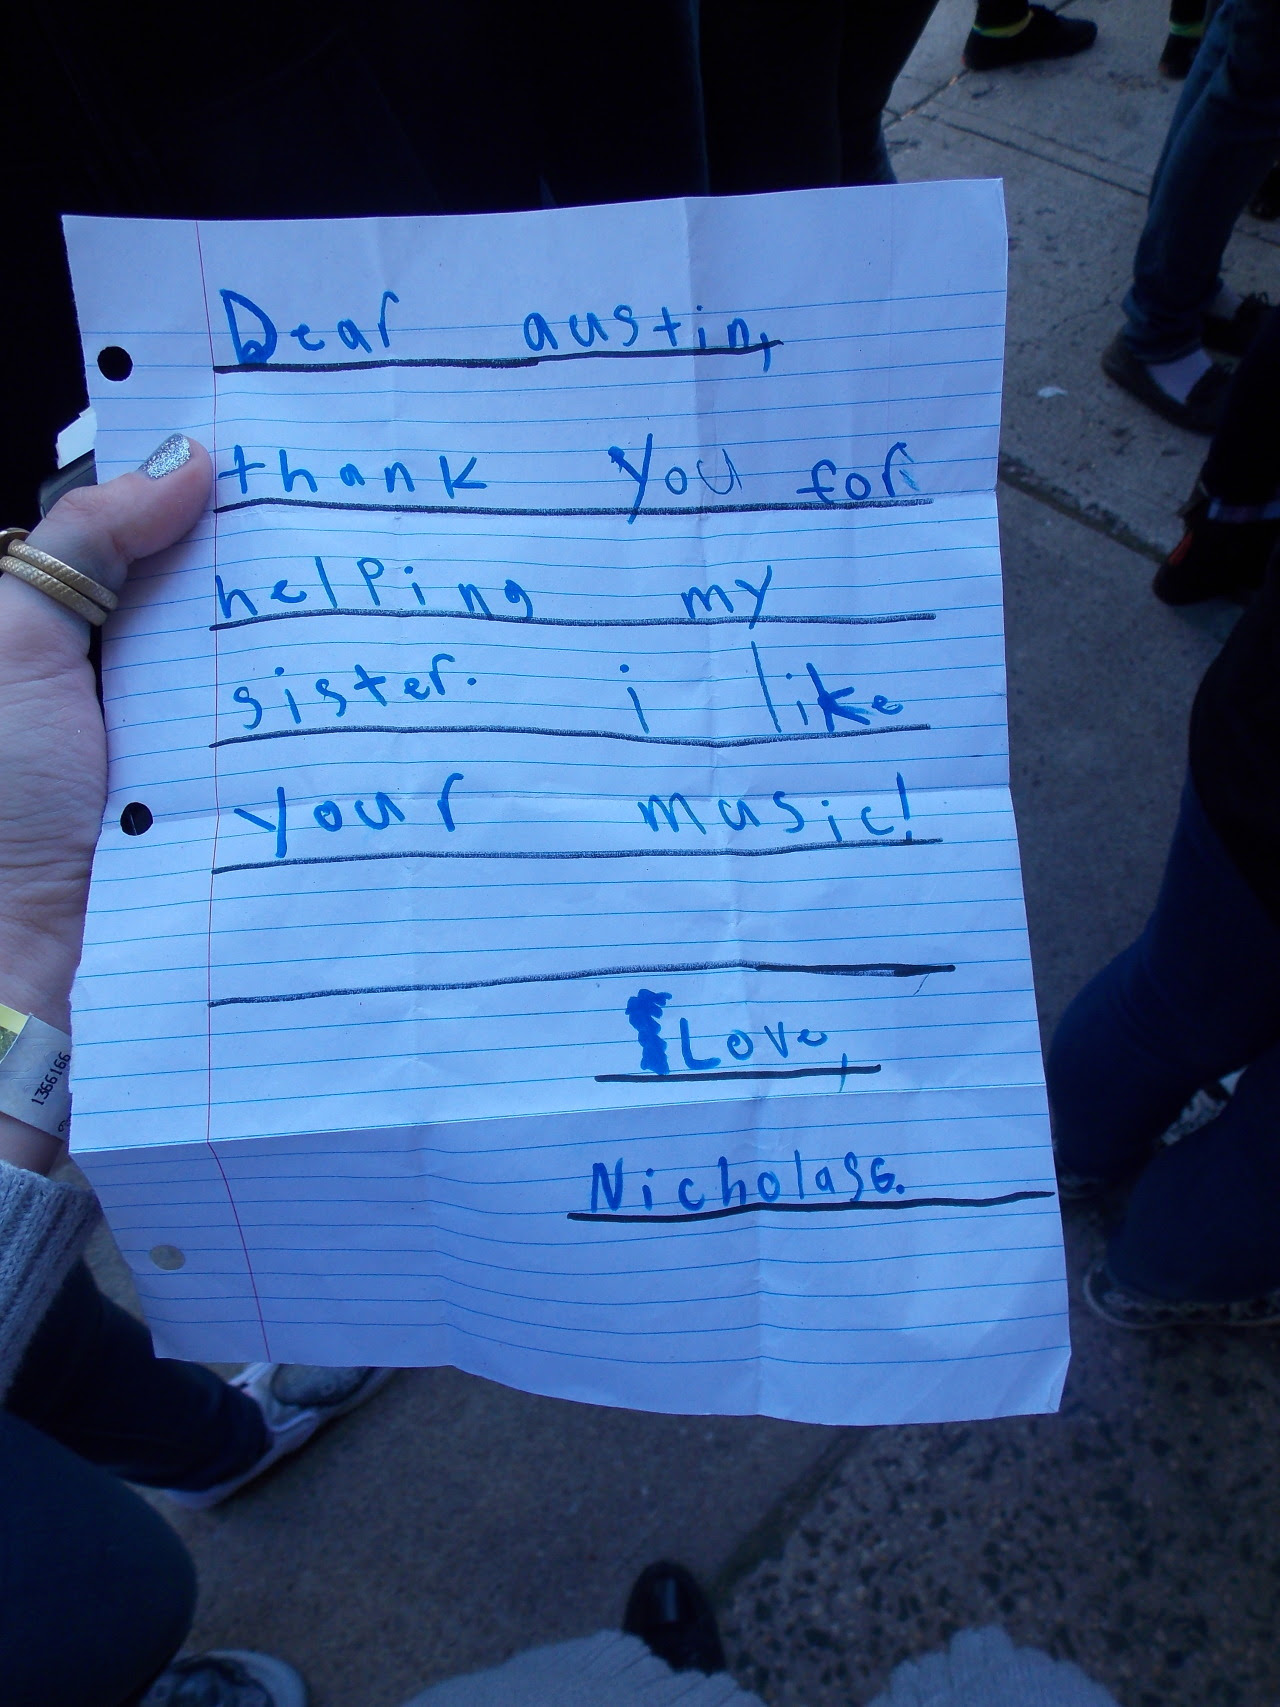 Dear austin,
thank You for
helping my
sister. i like
your music!
Love,
Nicholas G.
1366166